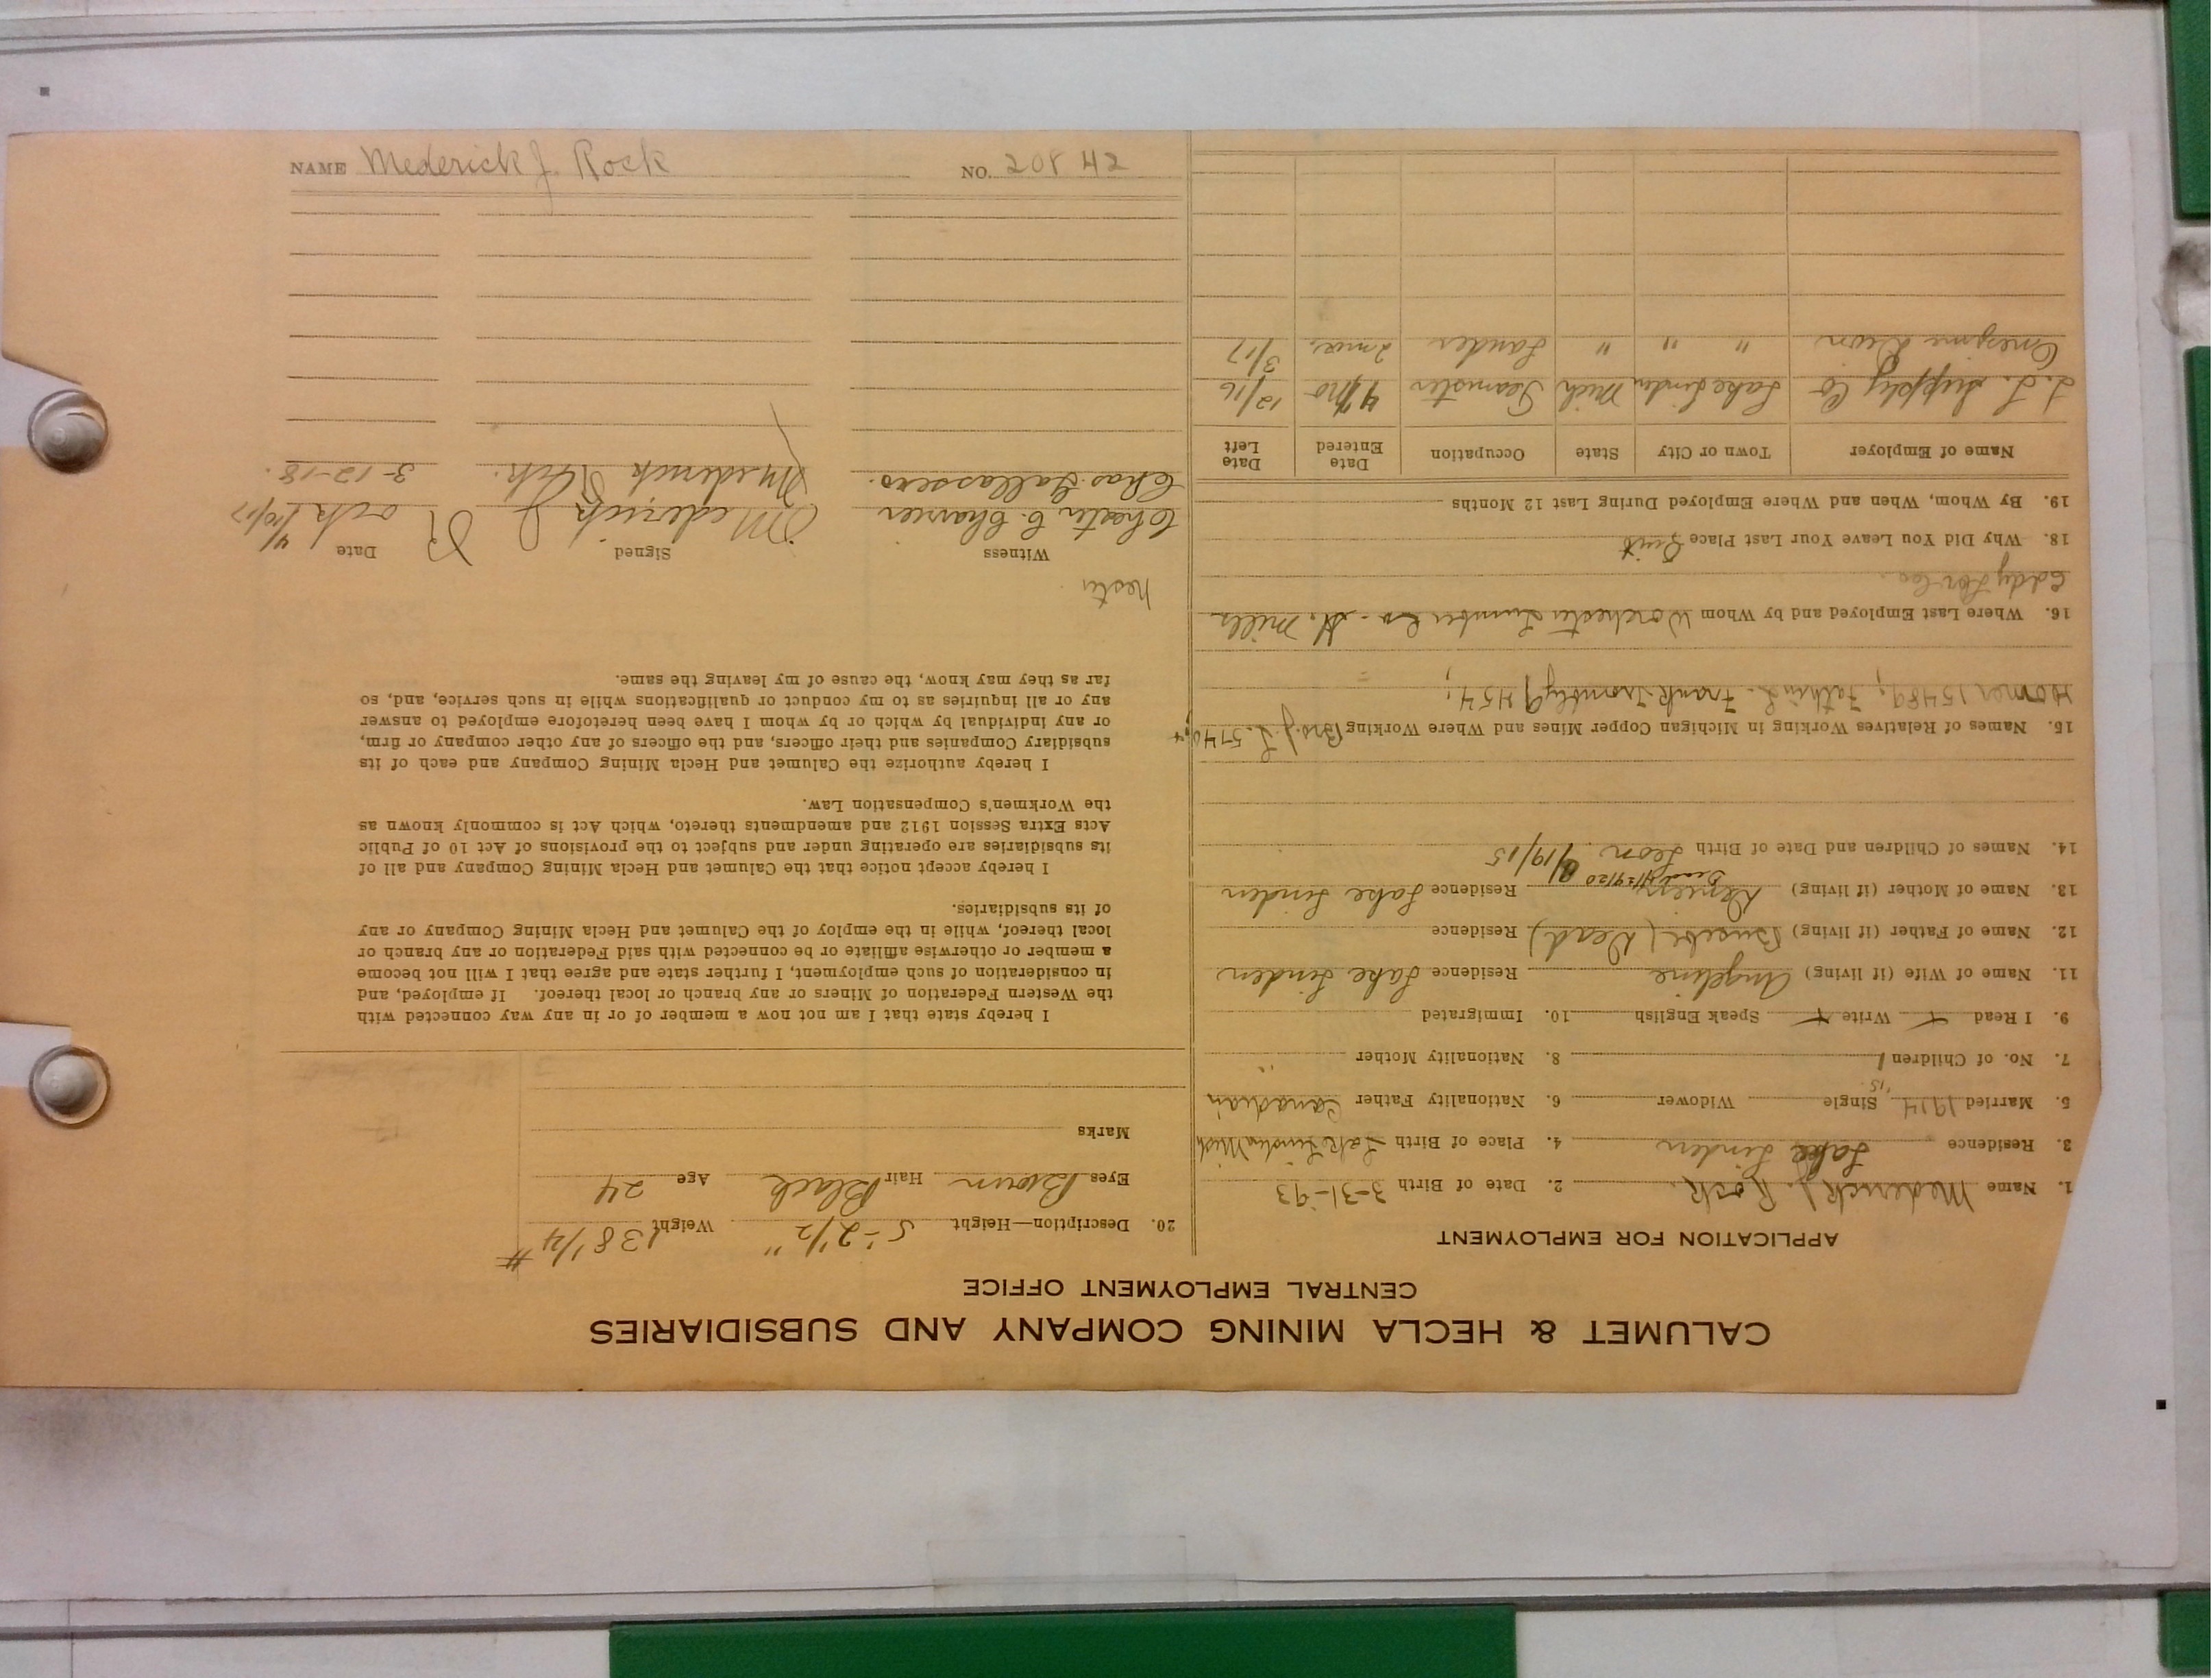 CALUMET & HECLA MINING COMPANY AND SUBSIDIARIES
CENTRAL EMPLOYMENT OFFICE
APPLICATION FOR EMPLOYMENT
1. Name Mederick J. Rock. 2. Date of Birth 3-31-93
3. Residence Lake Linden 4. Place of Birth Lake Linden Mich
5. Married 1914 '15 Single Widower 6. Nationality Father Canadian
7. No. of Children 1 8. Nationality Mother "
9. I Read Write Speak English 10. Immigrated
11. Name of Wife (if living) Angeline Residence Lake Linden
12. Name of Father (if living) (Dead) Residence
13. Name of Mother (if living) Residence Lake Linden
Dead
14. Names of Children and Date of Birth Leon 9/19/15
15. Names of Relatives Working in Michigan Copper Mines and Where Working Bro J. L. 5740
Homer 15489; Fath in L. Frank Trombly 9454;
16. Where Last Employed and by Whom Worchester Lumber Co - St. Mills
Eddy
18. Why Did You Leave Your Last Place Quit
19. By Whom, When and Where Employed During Last 12 Months
Name of Employer Town or City State Occupation Date Entered Date Left
L. L. Supply Co Lake Linden Mich Teamster 12/16
Onesime Dion " " " 2 mos. 3/17
20. Description—Height 5'-2 1/2" Weight 138 1/4 #
Eyes Brown Hair Black Age 24
Marks
I hereby state that I am not now a member of or in any way connected with
the Western Federation of Miners or any branch or local thereof. If employed, and
in consideration of such employment, I further state and agree that I will not become
a member or otherwise affiliate or be connected with said Federation or any branch or
local thereof, while in the employ of the Calumet and Hecla Mining Company or any
of its subsidiaries.
I hereby accept notice that the Calumet and Hecla Mining Company and all of
its subsidiaries are operating under and subject to the provisions of Act 10 of Public
Acts Extra Session 1912 and amendments thereto, which Act is commonly known as
the Workmen's Compensation Law.
I hereby authorize the Calumet and Hecla Mining Company and each of its
subsidiary Companies and their officers, and the officers of any other company or firm,
or any individual by which or by whom I have been heretofore employed to answer
any or all inquiries as to my conduct or qualifications while in such service, and, so
far as they may know, the cause of my leaving the same.
Witness Signed Date
Chester C. Chavrier Mederick J Rock 4/10/17
Chas. Mederick Rock. 3-12-18.
NAME Mederick J. Rock NO. 20842